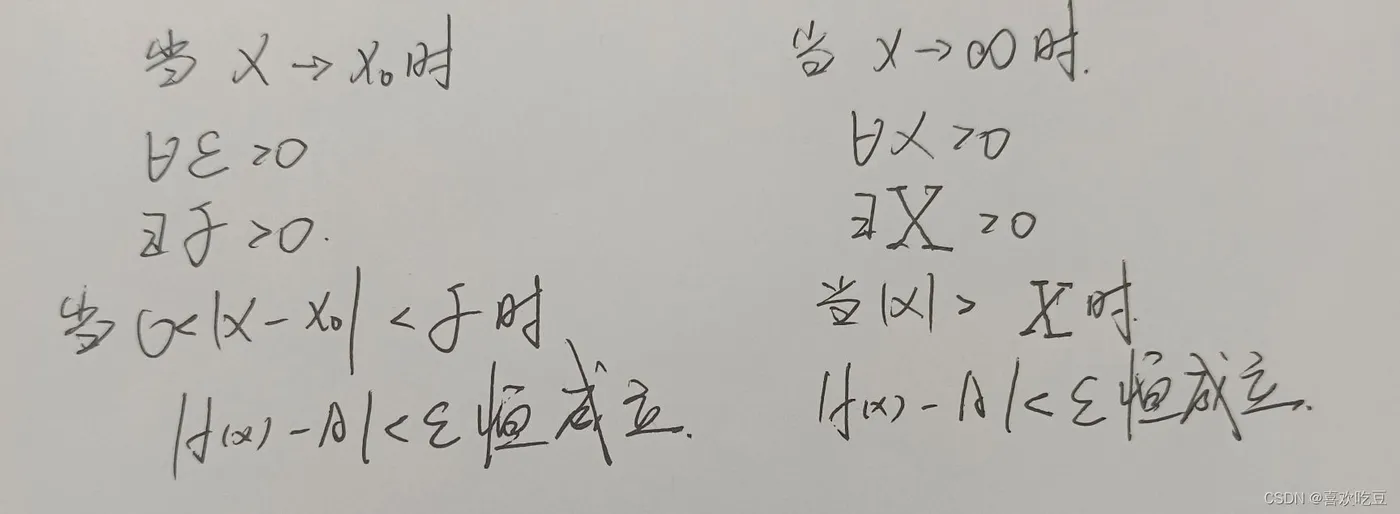 当 x → x₀ 时
∀ε >0
∃δ >0.
当 0<|x - x₀| < δ 时
|f(x) - A| < ε 恒成立.
当 x → ∞ 时.
∀x >0
∃X >0
当 |x| > X 时.
|f(x) - A| < ε 恒成立.
CSDN @喜欢吃豆